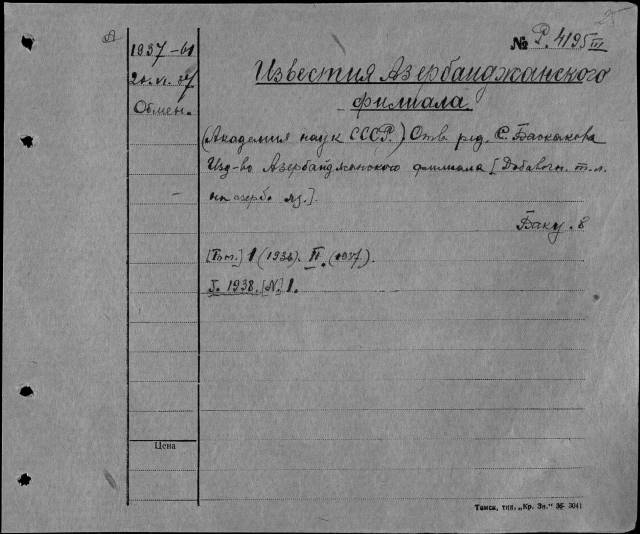 1937-61
20.VI.37
Обмен.
№ Р. 4195 III
Известия Азербайджанского
филиала
(Академия наук СССР.) Отв. ред. С. Баскакова
Изд-во Азербайджанского филиала [
на азерб. яз.].
Баку. 8
1 (1936). II. (1937).
J. 1938. [N.] 1.
Цена
Томск, тип. „Кр. Зн." 36 3041